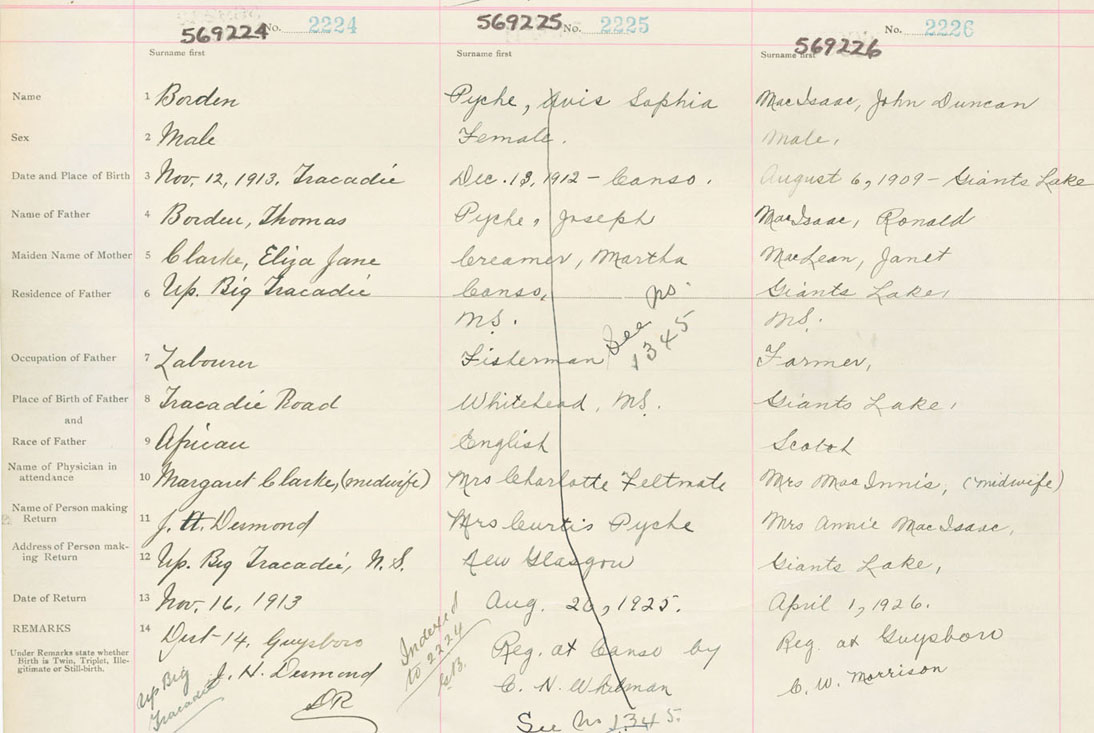 569224 No. 2224 569225 No. 2225 569226 No. 2226
Surname first Surname first Surname first
Name 1 Borden Pyche, Avis Sophia MacIsaac, John Duncan
Sex 2 Male Female. Male,
Date and Place of Birth 3 Nov. 12, 1913. Tracadie Dec. 13, 1912 - Canso. August 6, 1909 - Giants Lake
Name of Father 4 Borden, Thomas Pyche, Joseph MacIsaac, Ronald
Maiden Name of Mother 5 Clarke, Eliza Jane Creamer, Martha MacLean, Janet
Residence of Father 6 Up. Big Tracadie Canso, Giants Lake,
N.S. See no. 1345 N.S.
Occupation of Father 7 Labourer Fisherman Farmer,
Place of Birth of Father 8 Tracadie Road Whitehead, N.S. Giants Lake,
and
Race of Father 9 African English Scotch
Name of Physician in
attendance 10 Margaret Clarke, (midwife) Mrs Charlotte Feltmate Mrs MacInnis, (midwife)
Name of Person making
Return 11 J. H. Desmond Mrs Curtis Pyche Mrs Annie MacIsaac,
Address of Person mak-
ing Return 12 Up. Big Tracadie, N.S. New Glasgow Giants Lake,
Date of Return 13 Nov. 16, 1913 Aug. 20, 1925. April 1, 1926.
REMARKS 14 Dist-14, Guysboro Reg. at Canso by Reg. at Guysboro
Under Remarks state whether
Birth is Twin, Triplet, Ille-
gitimate or Still-birth.
J. H. Desmond C. N. Whitman C. W. Morrison
DR
Up Big
Tracadie
Indexed
to 2224
See No 1345.